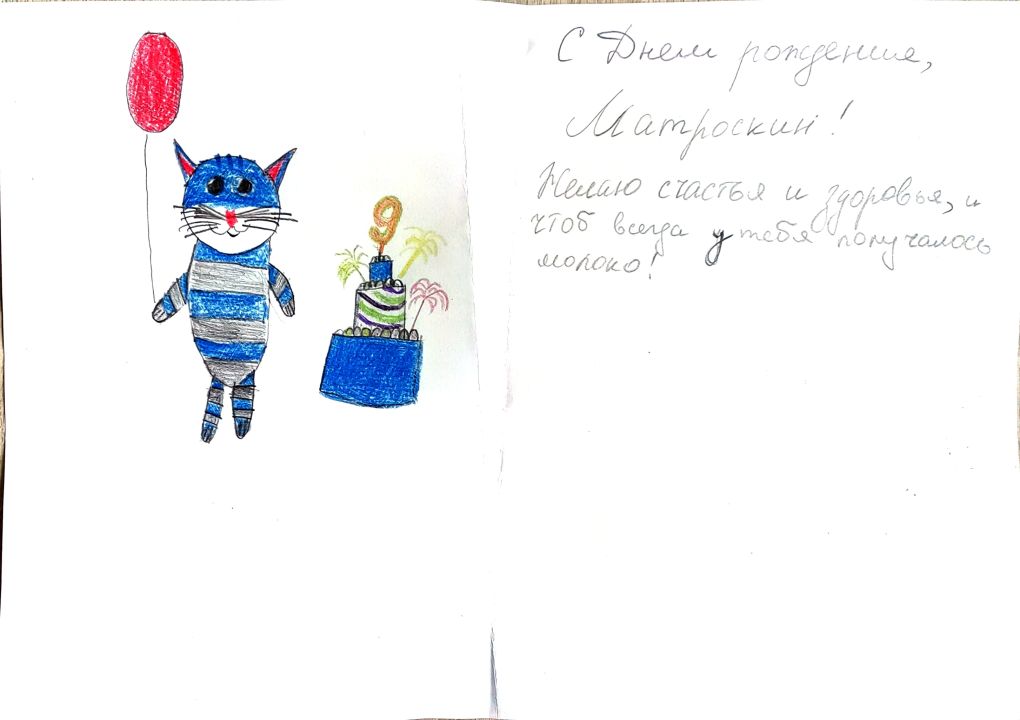 9
С Днем рождения,
Матроскин!
Желаю счастья и здоровья, и
чтоб всегда у тебя получалось
молоко!